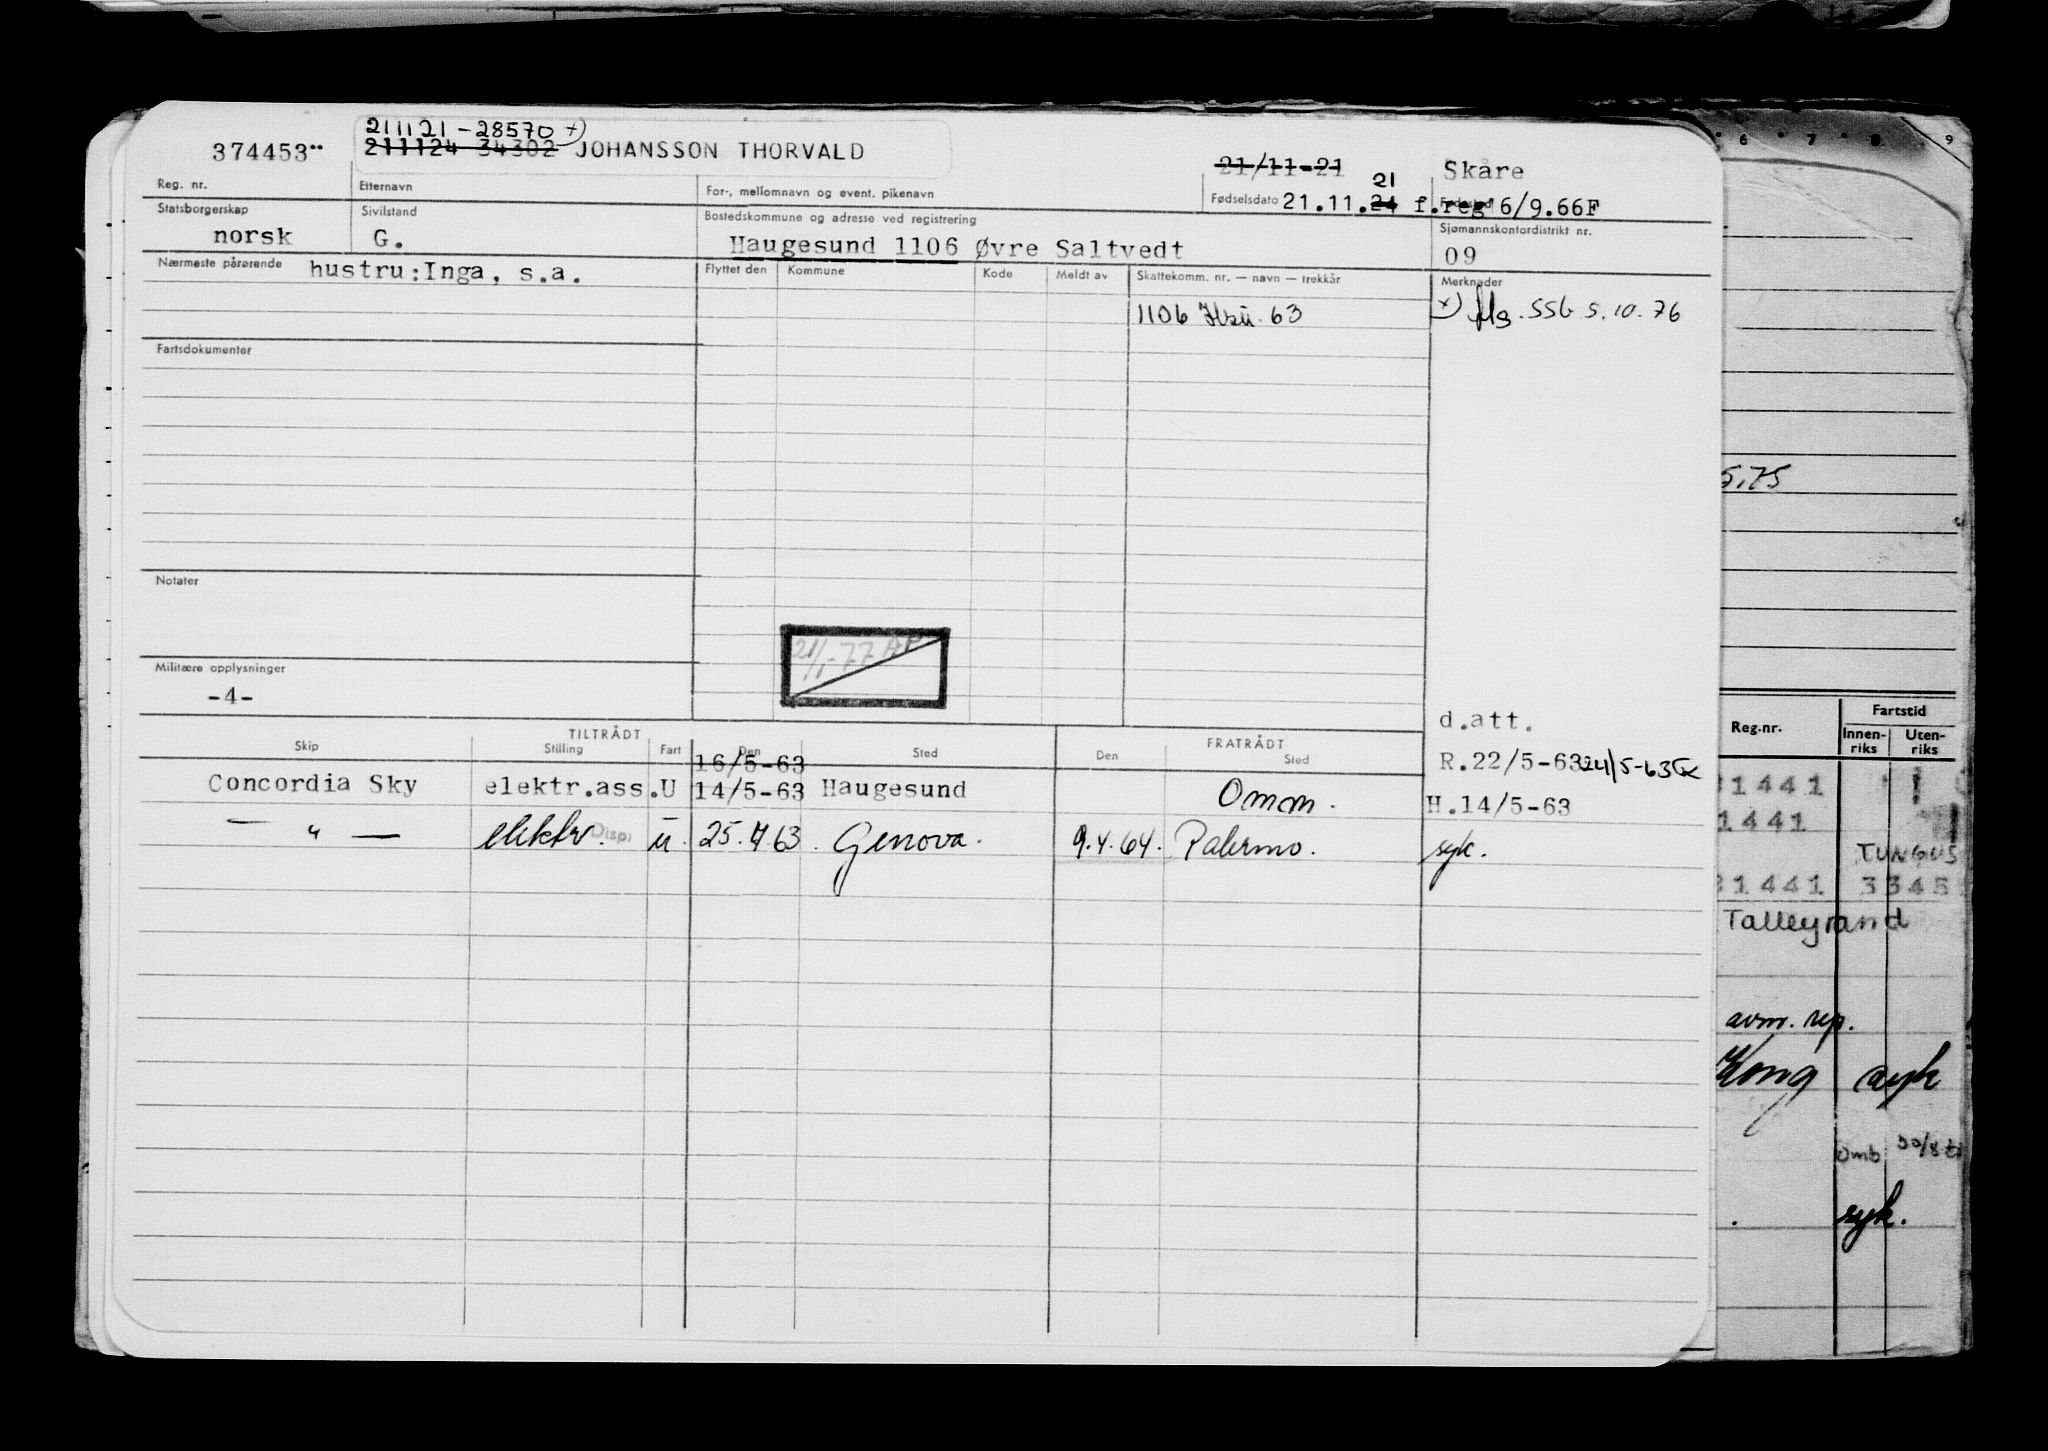 211121-28570 x)
374453** 211124 34302 JOHANSSON THORVALD
21/11-21 Skåre
Reg. nr. Etternavn For-, mellomnavn og event. pikenavn
21
Fødselsdato 21.11.24 f.reg 6/9.66F
Statsborgerskap Sivilstand Bostedskommune og adresse ved registrering Sjømannskontordistrikt nr.
norsk G. Haugesund 1106 Øvre Saltvedt 09
Nærmeste pårørende hustru:Inga, s.a. Flyttet den Kommune Kode Meldt av Skattekomm. nr. — navn — trekkår Merknader
1106 63 x) SSB 5.10.76
Fartsdokumenter
Notater
21/1-77
Militære opplysninger
-4-
d.att.
TILTRÅDT FRATRÅDT
Skip Stilling Fart Den Sted Den Sted
16/5-63 R.22/5-63 24/5-63
Concordia Sky elektr.ass.U 14/5-63 Haugesund Omm. H.14/5-63
— " — elektr. Disp. u. 25.7.63. Genova. 9.4.64. Palermo. syk.
6 7 8 9
5.75
Reg.nr. Fartstid
Innen-riks Uten-riks
1441
1441
TUNGUS
1441 3345
Talleyrand
avm. rep.
Kong syk
omb. 30/8
syk.